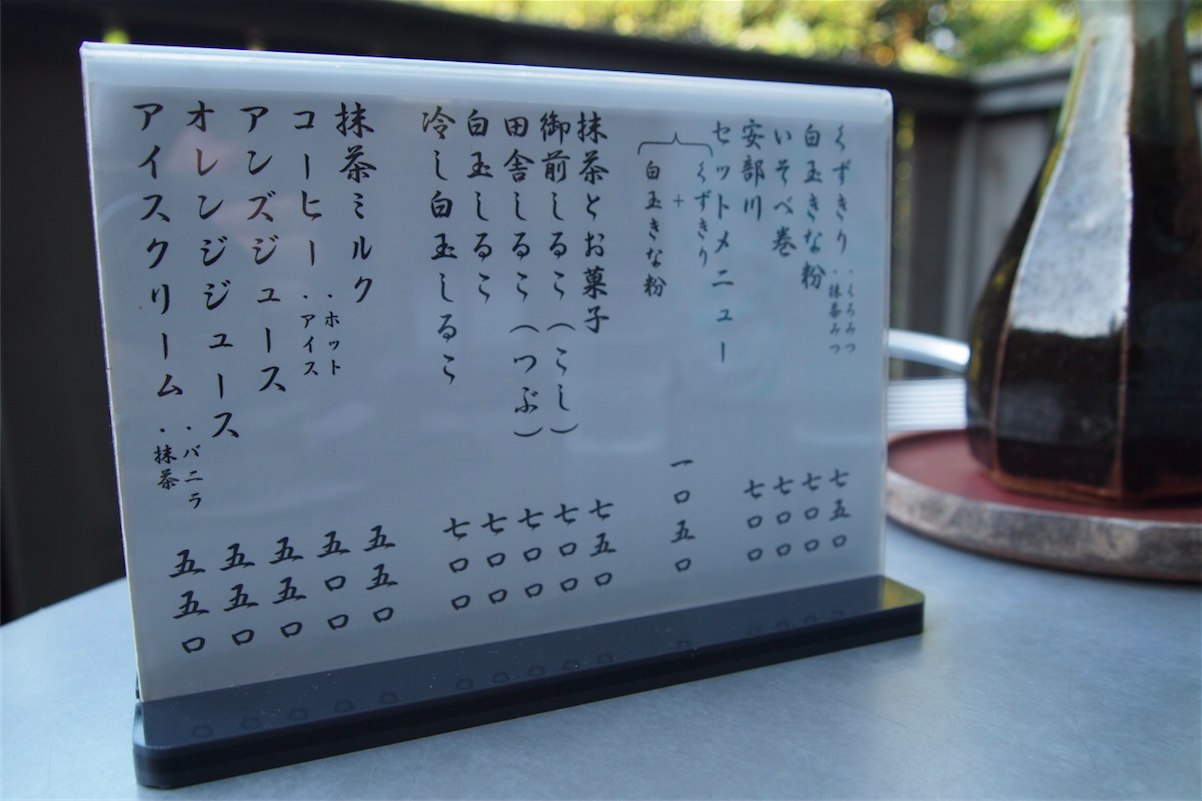 くずきり ・くろみつ ・抹茶みつ 七五〇
白玉きな粉 七〇〇
いそべ巻 七〇〇
安部川 七〇〇
セットメニュー
くずきり
+
白玉きな粉
一〇五〇
抹茶とお菓子 七五〇
御前しるこ(こし) 七〇〇
田舎しるこ(つぶ) 七〇〇
白玉しるこ 七〇〇
冷し白玉しるこ 七〇〇
抹茶ミルク 五五〇
コーヒー ・ホット ・アイス 五〇〇
アンズジュース 五五〇
オレンジジュース 五五〇
アイスクリーム ・バニラ ・抹茶 五五〇